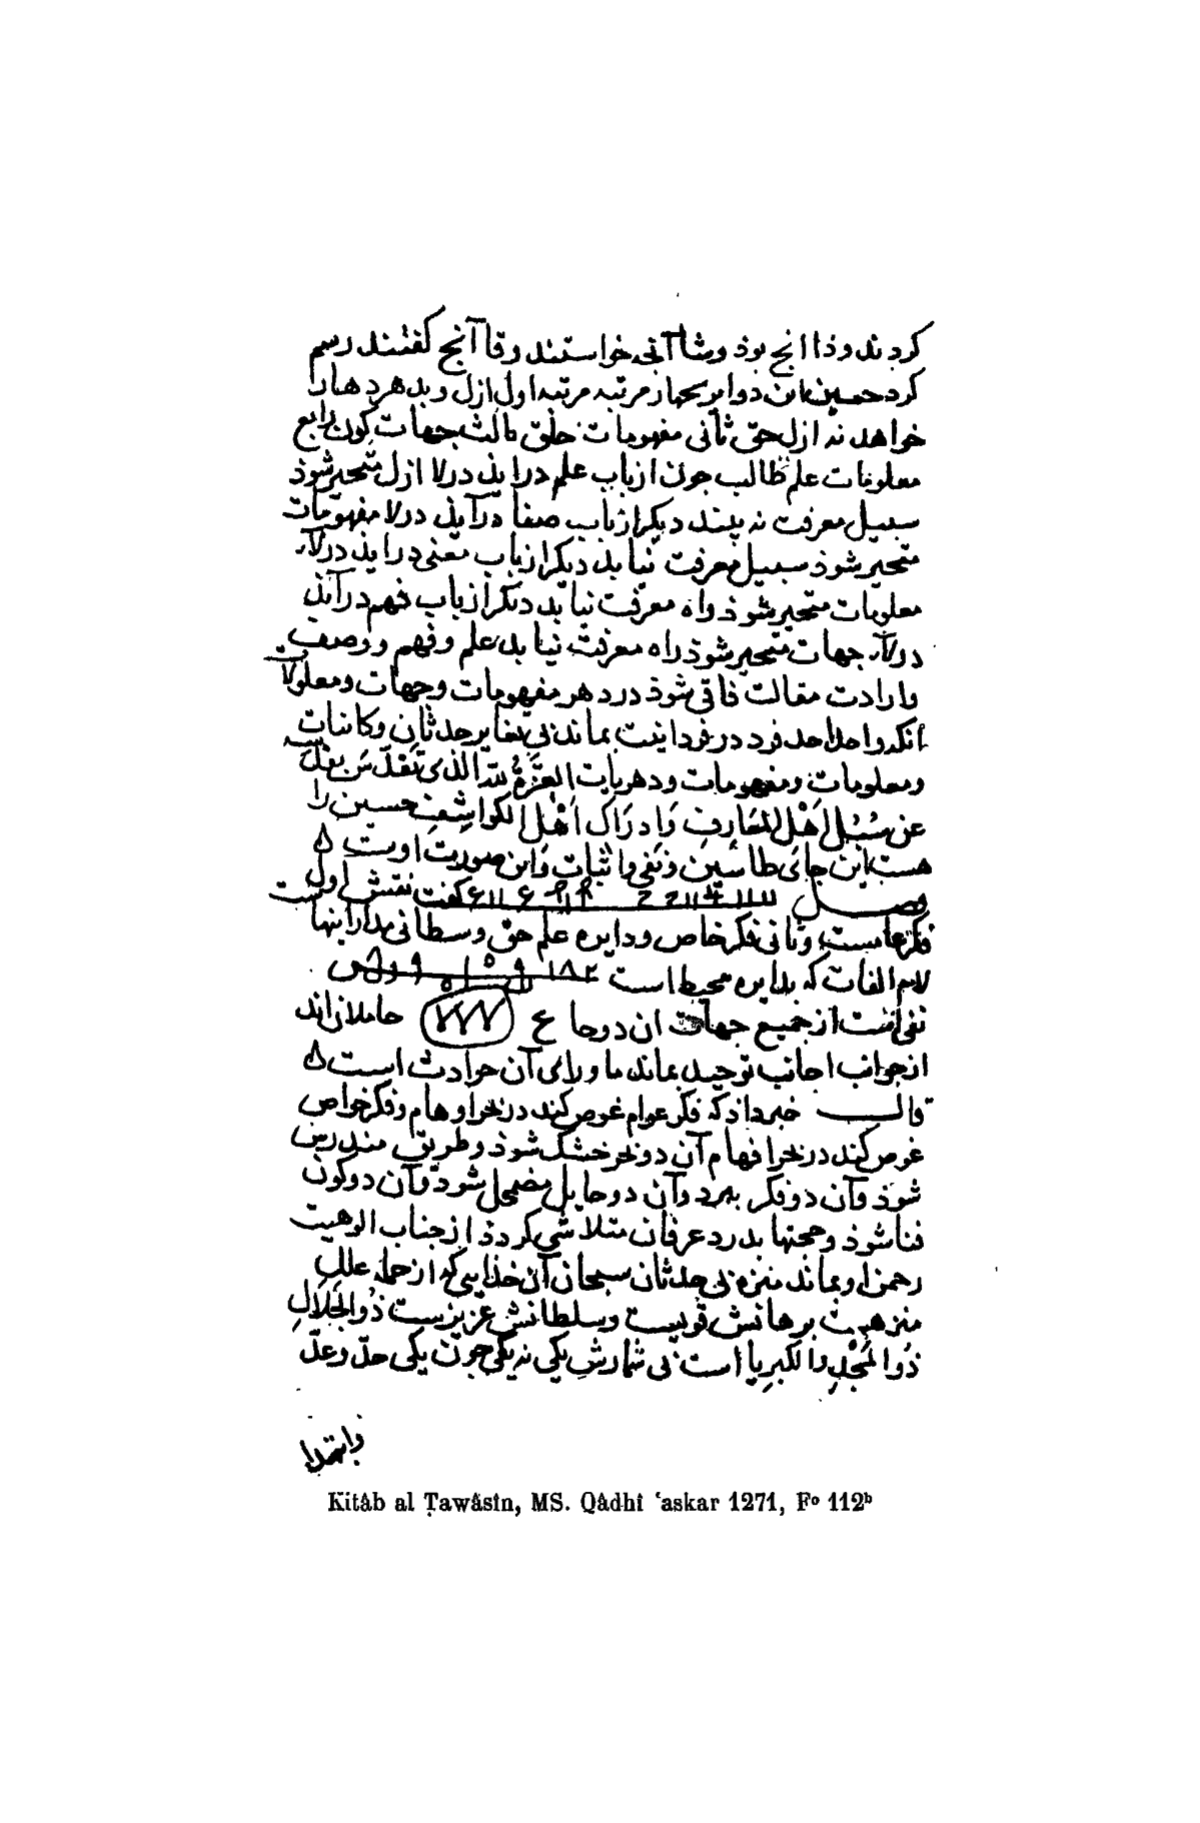 کردند وذا انج بوذ وشا آنچ خواستند وقا آنج کفتند رسم
کرد حسین این دوایر بچهار مرتبه مرتبه اول ازل و بدهر دهار
خواهد نه ازل حق ثانی مفهومات خلق ثالث جهات کون رابع
معلومات علم طالب جون از باب علم درایذ در لا ازل متحیر شوذ
سبیل معرفت نه بیند دیکر از باب صفا درآیذ در لا مفهومات
متحیر شوذ سبیل معرفت نیابد دیکر از باب معنی درایذ در لاء
معلومات متحیر شوذ واه معرفت نیابد دیکر از باب فهم درآیذ
در لاء جهات متحیر شوذ راه معرفت نیابد علم و فهم و وصفت
وارادت مقالت فانی شوذ در دهر مفهومات وجهات ومعلولات
آنکه واحد احد فرد در فردانیت بماند بی تغایر حدثان وکائنات
ومعلومات ومفهومات ودهریات العزة لله الذی تقدّس بقدسه
عن سُبُل اَهْل المَعَارِف وَادرَاک اَهْل الکواشِف حسین را
هست این جای طاسین ونفی واثبات وَاین صورت اوست ه
فصل کفت نقش اول
فکر عامست وثانی فکر خاص ودایره علم حق وسطانی مدار اینهاست
لام الفات که بدایره محیط است
نفی انیت از جمیع جهات ان دو حا ع حاملان اند
از جوانب اجانب توحید بماند ما ورای آن حوادث است ه
قالـــ خبر داد که فکر عوام غوص کند در بحر اوهام وفکر خواص
غوص کند در بحر افهام آن دو بحر خشک شوذ وطریق مندرس
شوذ وآن دو فکر بمیرد وآن دو حایل مضمحل شود وآن دو کون
فنا شوذ وحجتها بدرد عرفان متلاشی کردد از جناب الوهیت
رحمن او بماند منزه بی حدثان سبحان آن خدایی که از جمله علل
منزهست برهانش قویست وسلطانش عزیزست ذُوالجَلَالِ
ذُوا لمَجْدِ والکبرِیا است بی شمارش یکی نه یکی جون یکی حدّ وعدّ
وابتدا
Kitâb al Ṭawâsîn, MS. Qâdhî ʿaskar 1271, Fº 112ᵇ